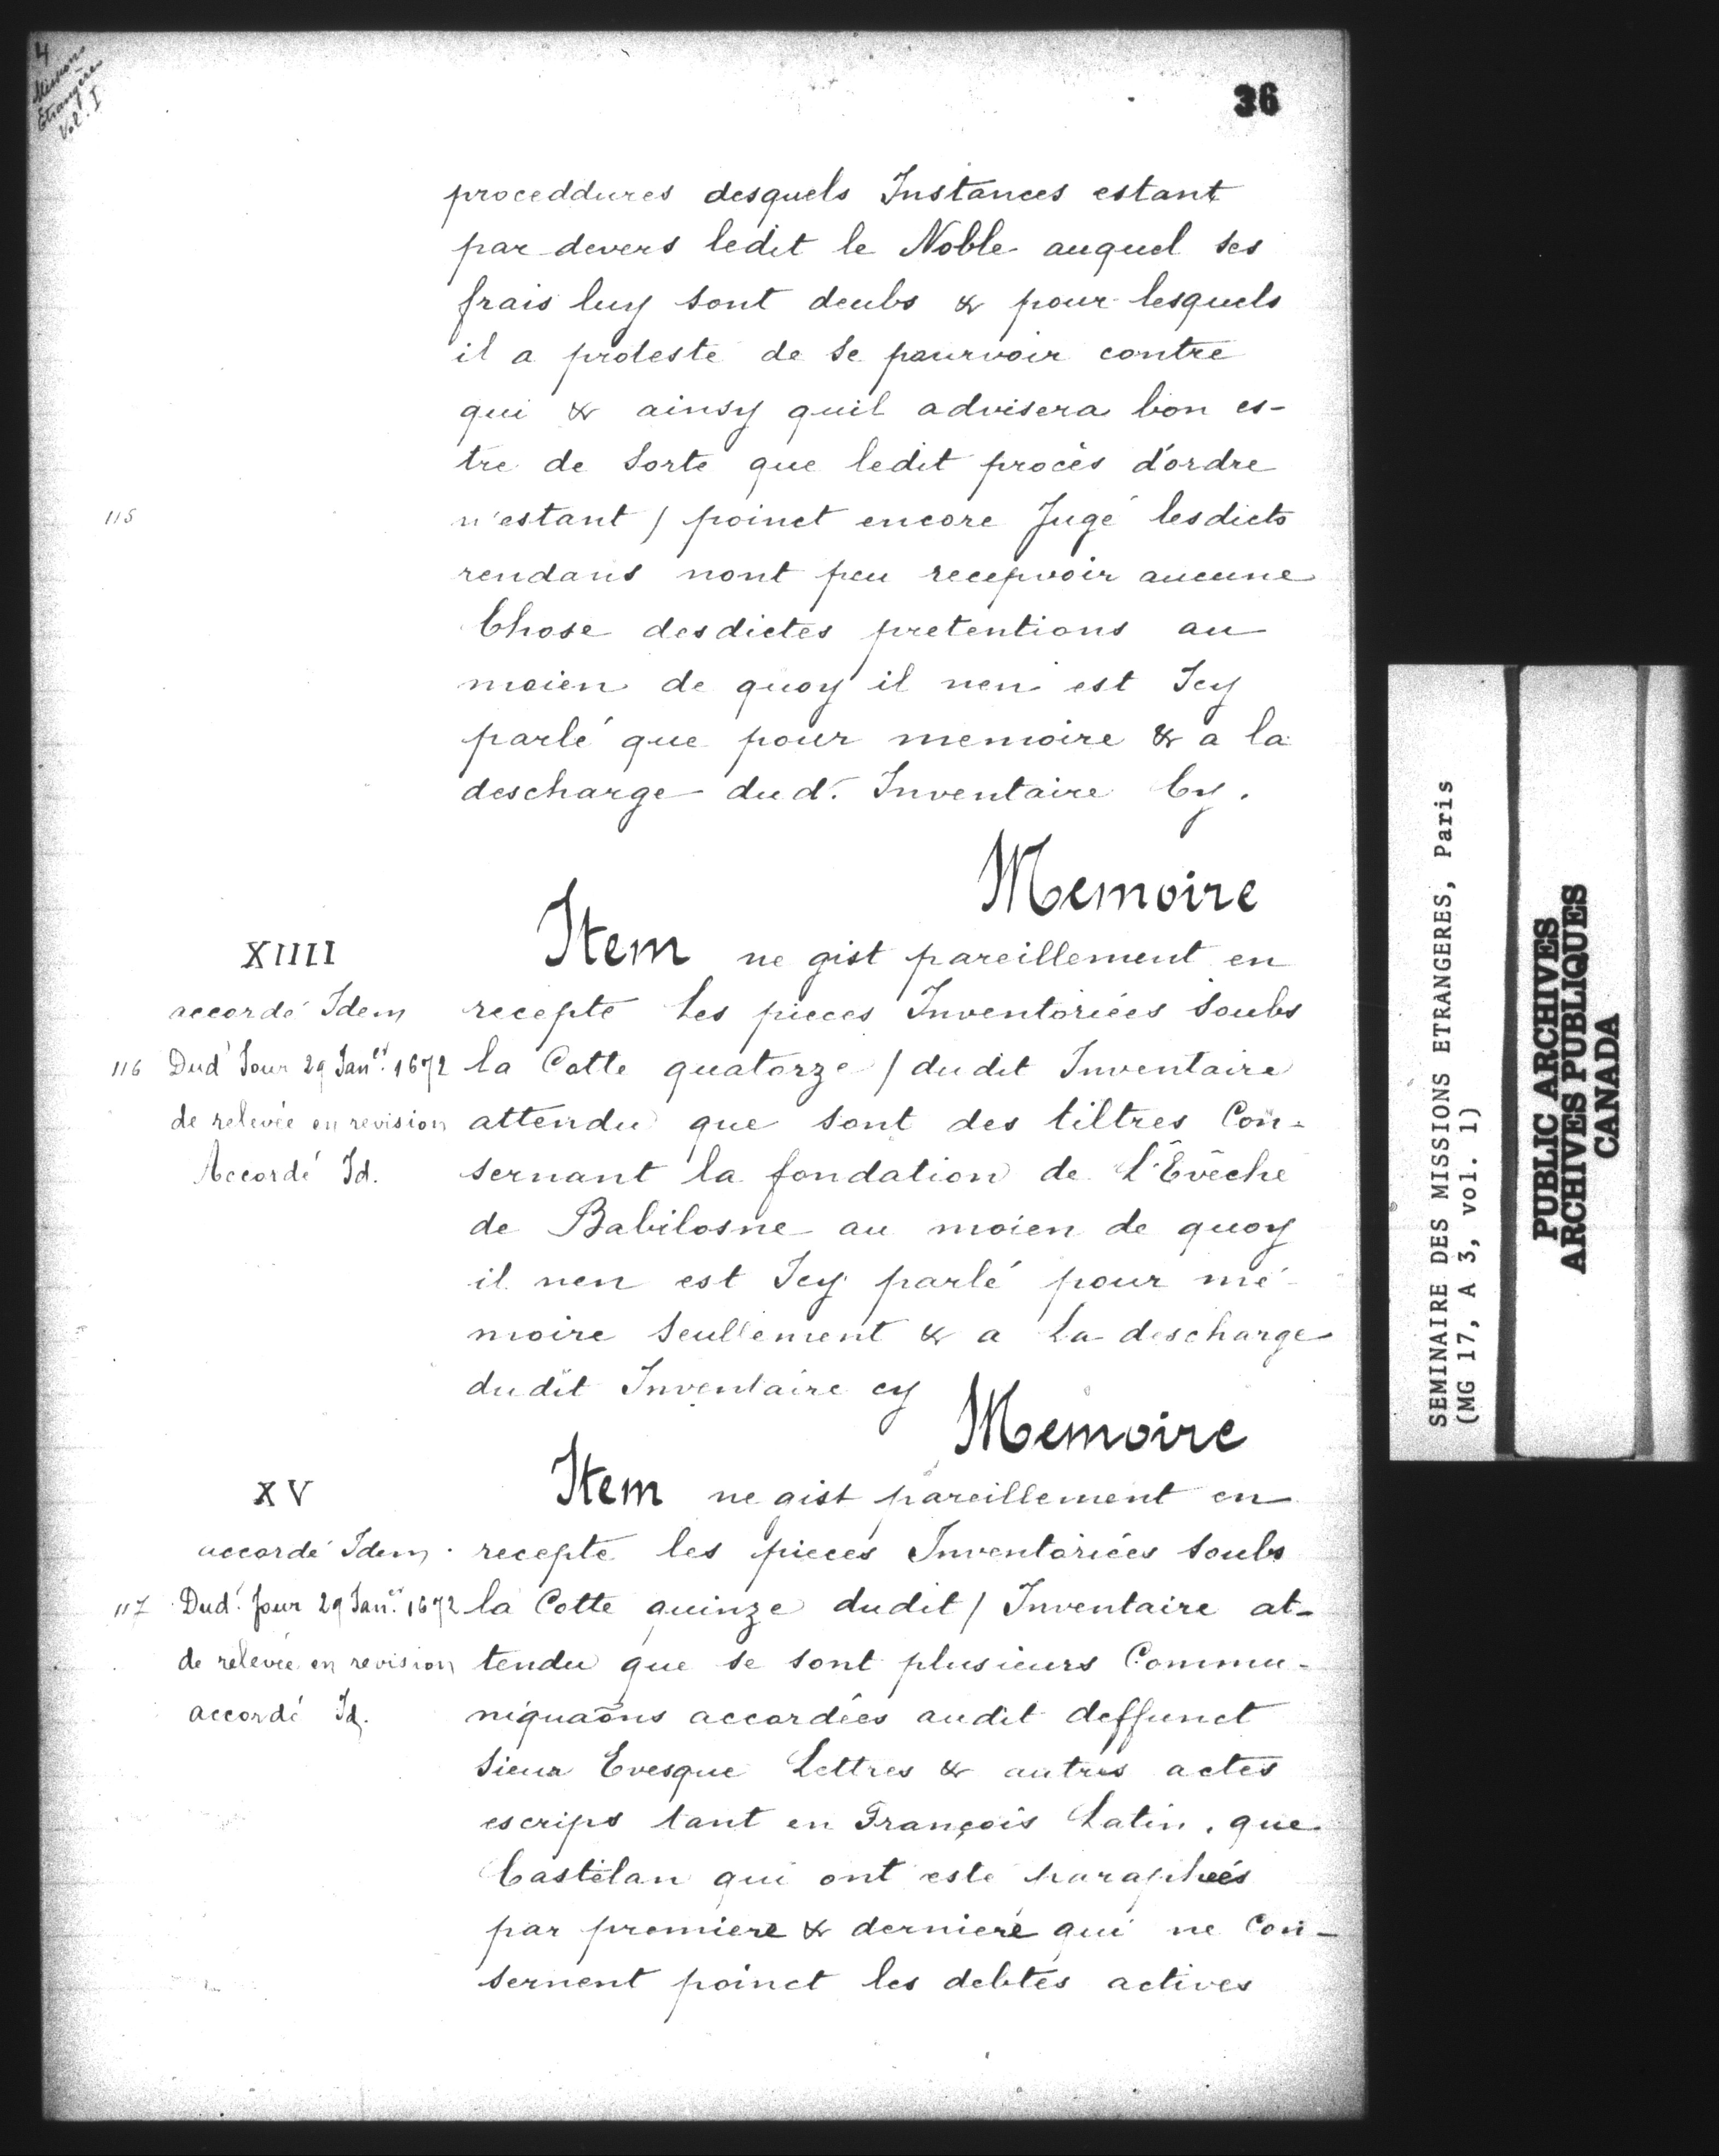 4
Missions
Etrangères
Vol. I
36
proceddures desquels Instances estant
par devers ledit le Noble auquel ses
frais luy sont deubs & pour lesquels
il a proteste de se pourvoir contre
qui & ainsy quil advisera bon es-
tre de sorte que ledit procès d'ordre
115
n'estant / poinct encore Jugé lesdicts
rendans nont peu recepvoir aucune
Chose desdictes pretentions au
moien de quoy il nen est Icy
parlé que pour memoire & a la
descharge dud. Inventaire Cy.
Memoire
XIIII
Item ne gist pareillement en
accordé Idem
recepte les pieces Inventoriées soubs
116
Dud Jour 29 Janer. 1672
la Cotte quatorze / dudit Inventaire
de relevée en revision
attendu que sont des tiltres Con-
Accordé Id.
sernant la fondation de L'Evêche
de Babilosne au moien de quoy
il nen est Icy parlé pour mé-
moire seullement & a La descharge
dudit Inventaire cy
Memoire
XV
Item ne gist pareillement en
accordé Idem.
recepte les pieces Inventoriées soubs
117
Dud. Jour 29 Janer. 1672
la Cotte quinze dudit / Inventaire at-
de relevée en revision
tendu que se sont plusieurs Commu-
accordé Id.
niquaōns accordées audit deffunct
Sieur Evesque Lettres & autres actes
escrips tant en François Latin, que
Castelan qui ont esté paraphées
par premiere & derniere qui ne Con-
sernent poinct les debtes actives
SEMINAIRE DES MISSIONS ETRANGERES, Paris
(MG 17, A 3, vol. 1)
PUBLIC ARCHIVES
ARCHIVES PUBLIQUES
CANADA